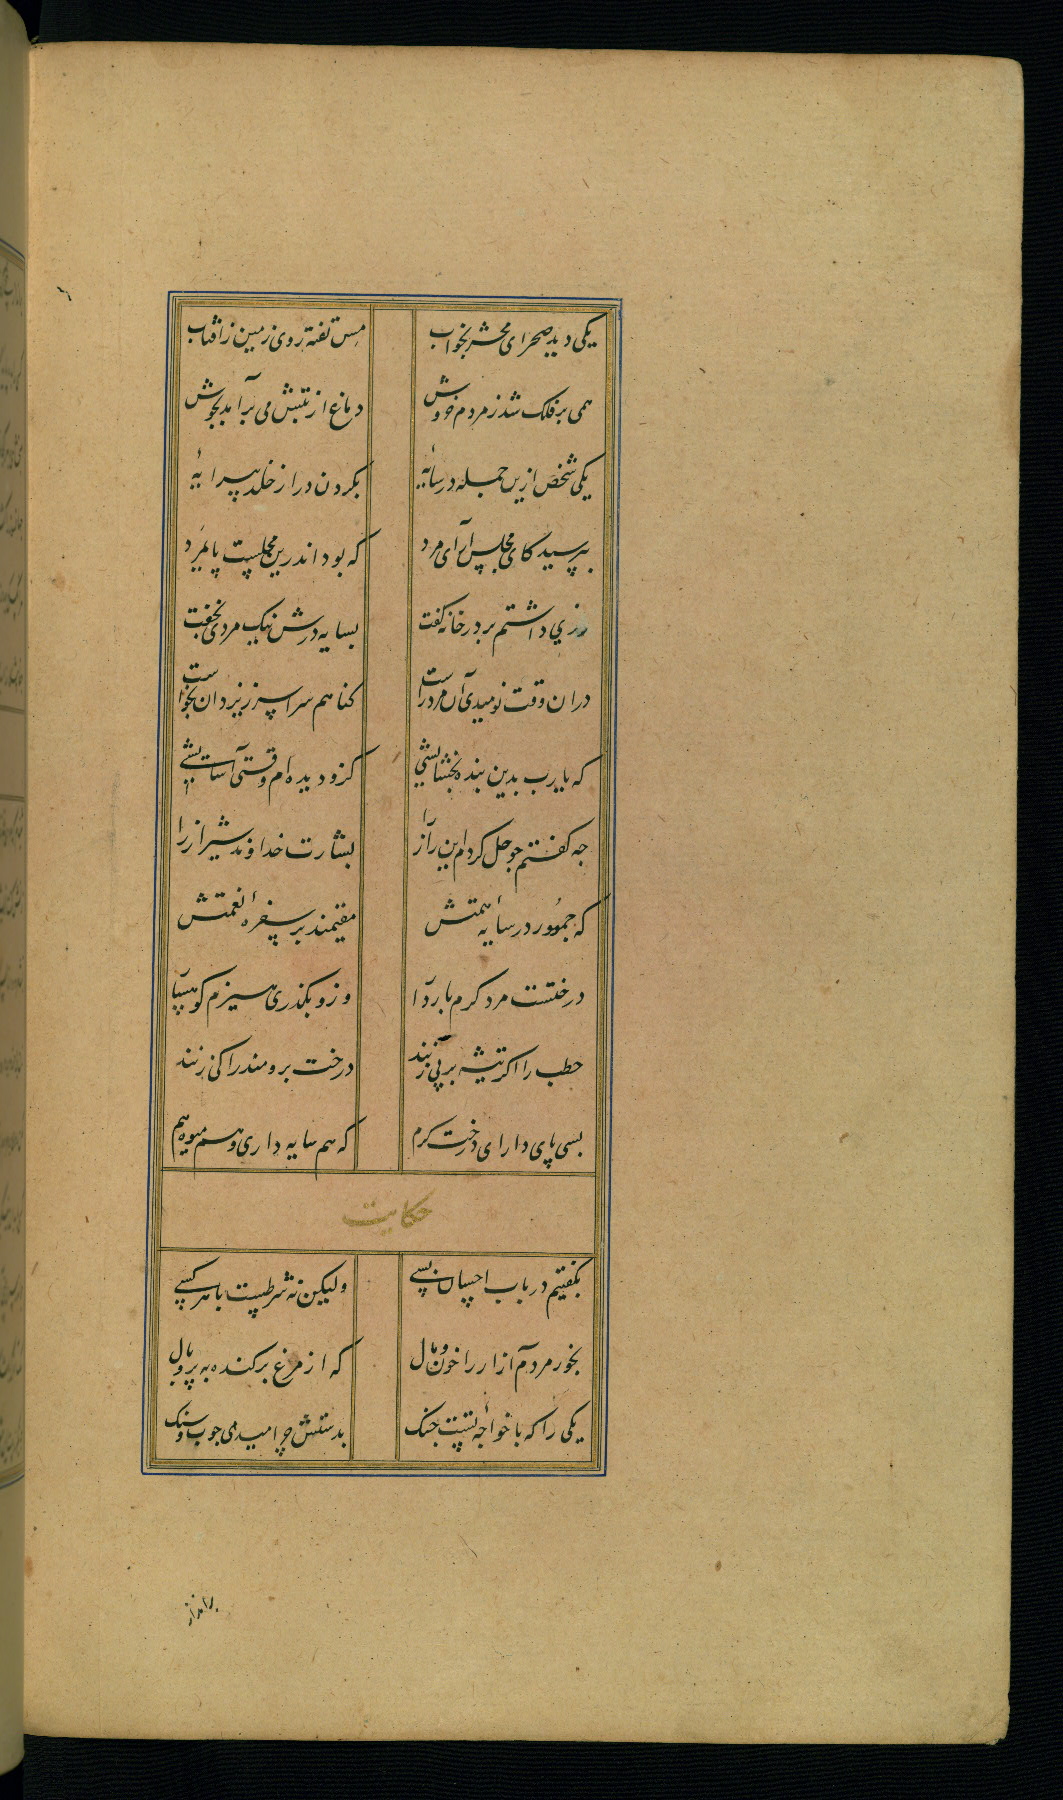 یکی دید صحرای محشر بخواب مس تفته روی زمین زافتاب
همی بر فلک شد ز مردم خروش دماغ از تبش می برآمد بجوش
یکی شخص ازین جمله در سایهٔ بکردن در از خلد پیرایهٔ
بپرسید کای مجلس آرای مرد که بود اندرین مجلست پایمرد
رزی داشتم بر در خانه کفت بسایه درش نیک مردی بخفت
در ان وقت نومیدی آن مرد راست کناهم سراسر ز یزدان بخواست
که یارب بدین بنده بخشایشی کزو دیده‌ام وقتی آسایشی
جه کفتم جو حل کردم این راز را بشارت خداوند شیراز را
که جمهور در سایهٔ همتش مقیمند بر سفرهٔ نعمتش
درختست مرد کرم باردار وزو بکذری هیزم کوهسار
حطب را اکر تیشه بر پی زنند درخت برومند را کی زنند
بسی پای دار ای درخت کرم که هم سایه داری و هم میوه هم
حکایت
بکفتیم در باب احسان بسی ولیکن نه شرطست با هر کسی
بخور مردم آزار را خون و مال که از مرغ بر کنده به پر و بال
یکی را که با خواجه تست جنک بدستش چرا میدهی جوب و سنک
برانداز